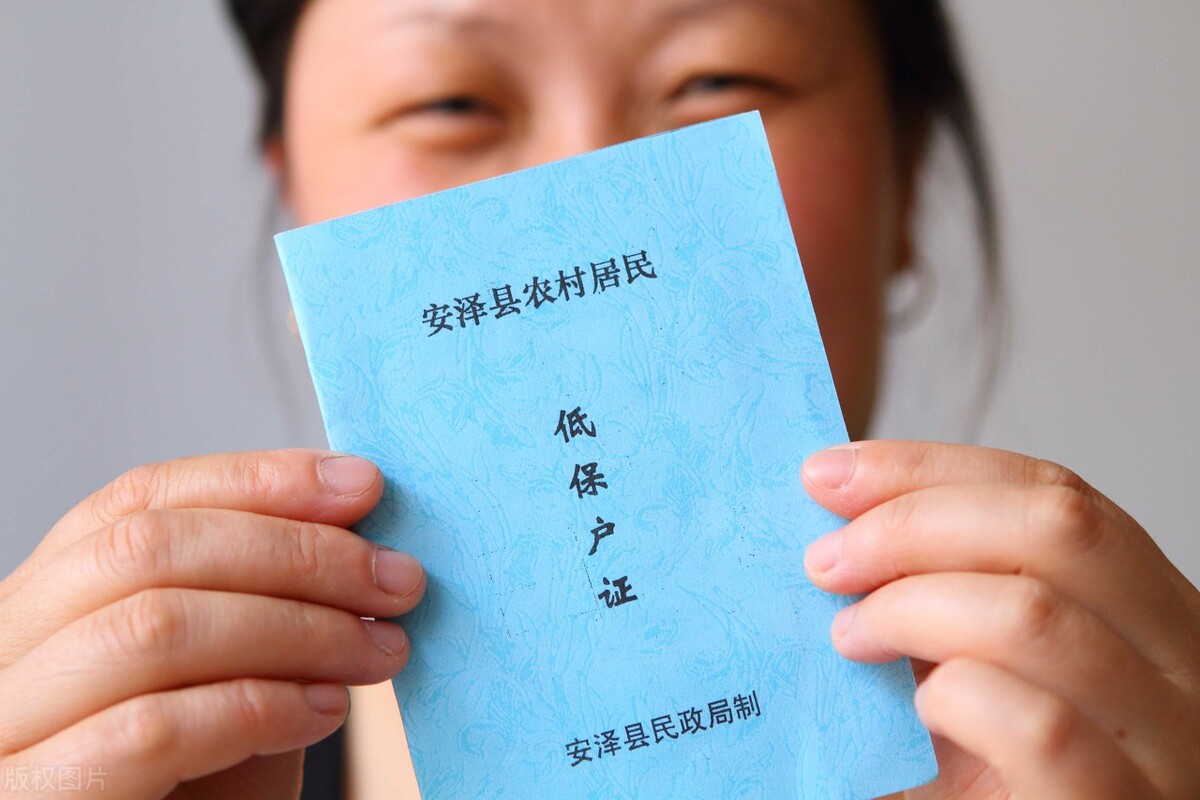 安泽县农村居民
低
保
户
证
安泽县民政局制
版权图片